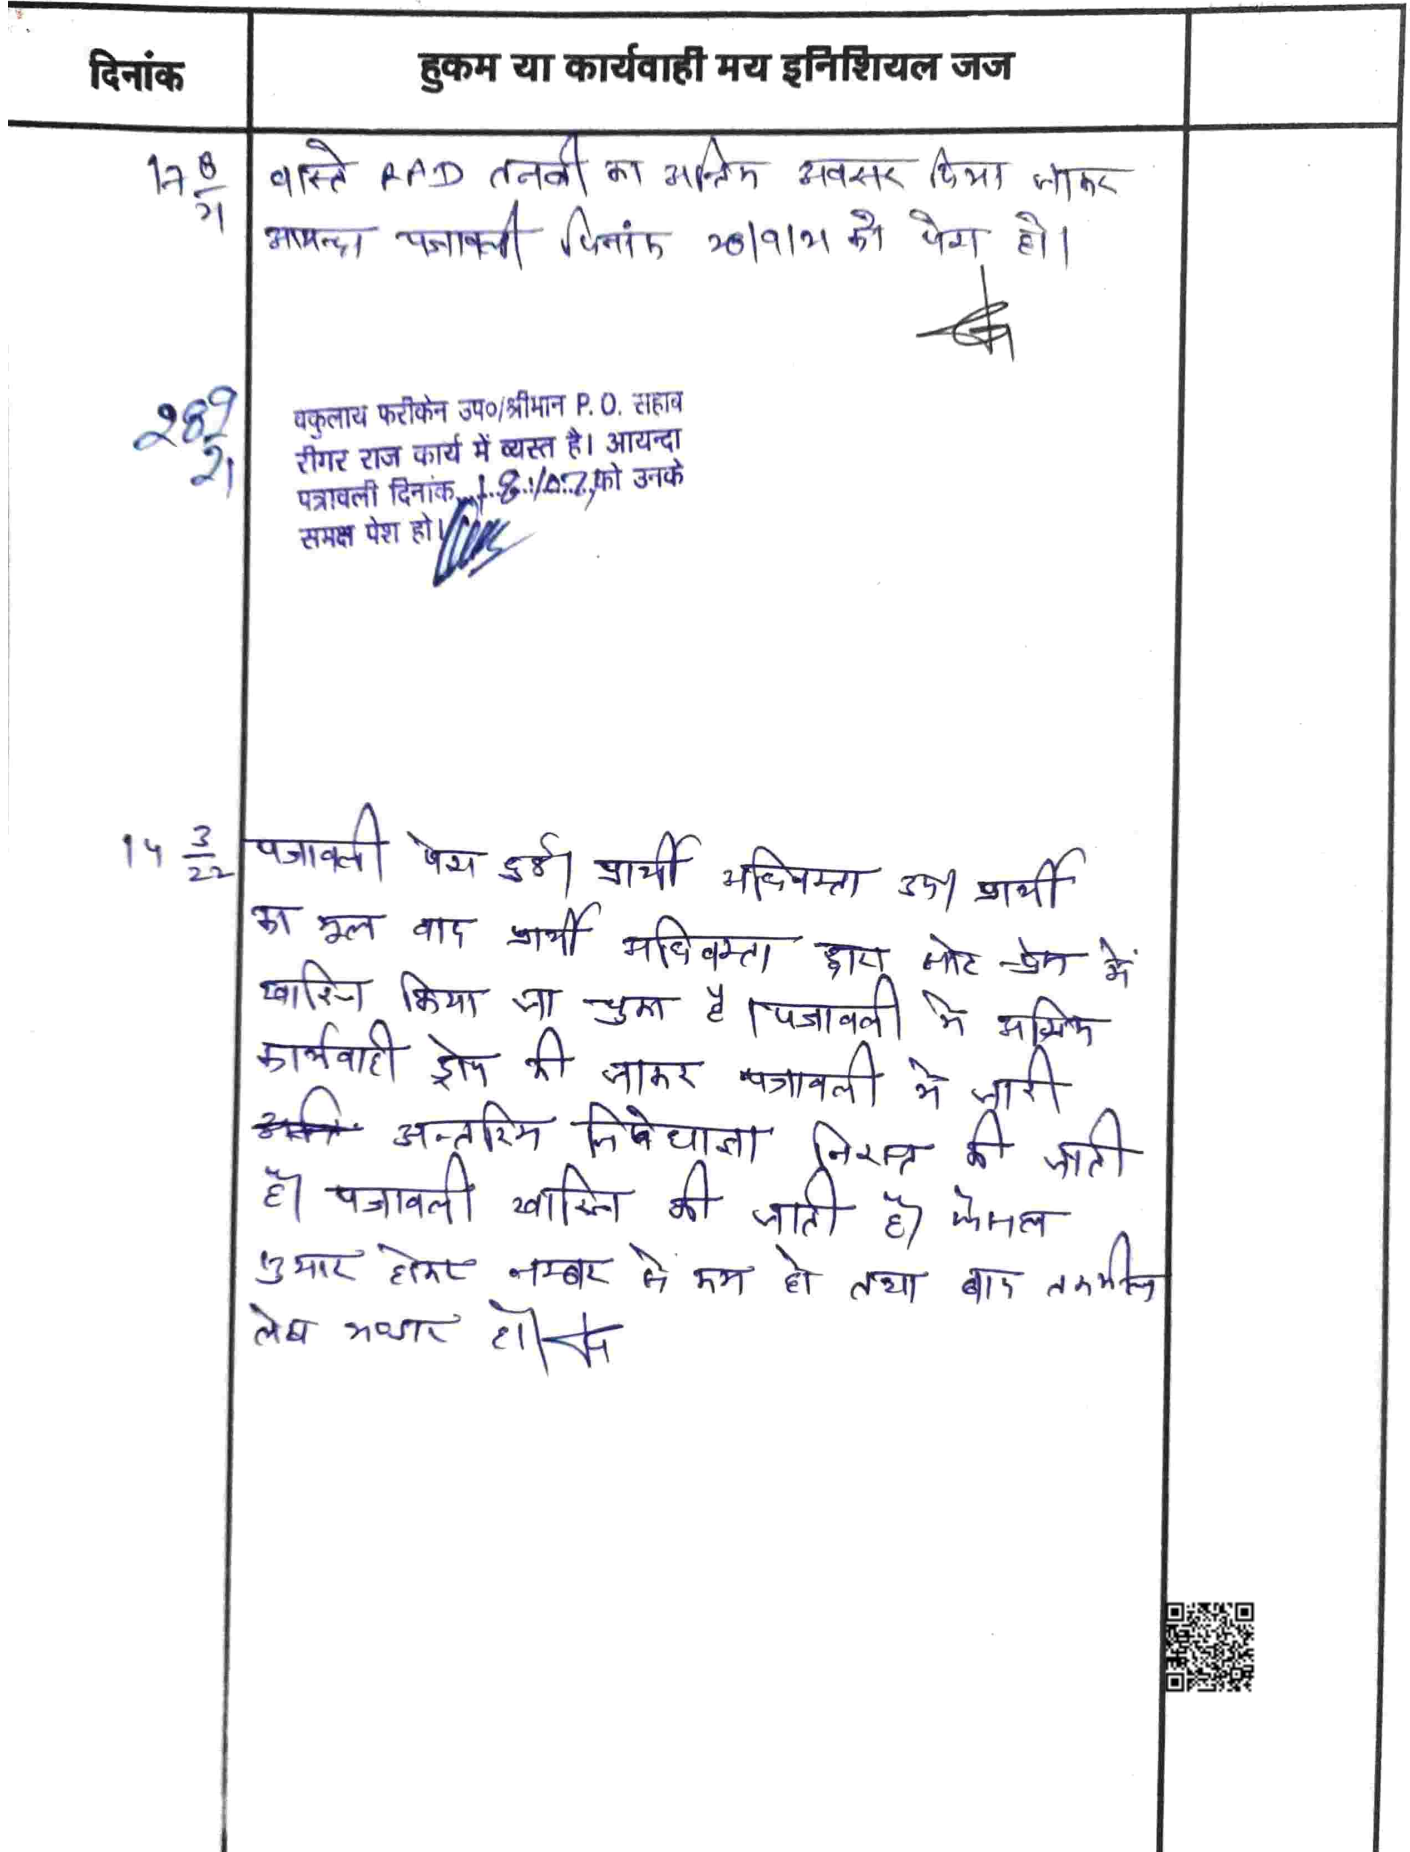 दिनांक हुकम या कार्यवाही मय इनिशियल जज
17 8/21 वास्ते RAD तलबी का अन्तिम अवसर दिया जाकर
आयन्दा पत्रावली दिनांक 28/9/21 को पेश हो।
28 9/21 वकुलाय फरीकेन उप०/श्रीमान P.O. सहाब
दीगर राज कार्य में व्यस्त है। आयन्दा
पत्रावली दिनांक को उनके
समक्ष पेश हो।
14 3/22 पत्रावली पेश हुई। प्रार्थी अधिवक्ता उप। प्रार्थी
का मूल वाद प्रार्थी अधिवक्ता द्वारा नोट प्रेस में
खारिज किया जा चुका है। पत्रावली में अग्रिम
कार्यवाही ड्रोप की जाकर पत्रावली में जारी
अन्तरिम निषेधाज्ञा निरस्त की जाती
है। पत्रावली खारिज की जाती है। फैसल
शुमार होकर नम्बर से कम हो तथा बाद तकमील
लेख भण्डार हो।